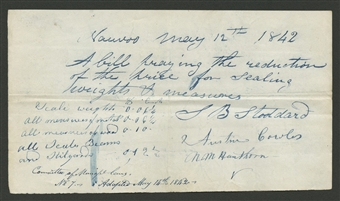 Nauvoo May 12th 1842
A bill praying the reduction
of the price for Sealing
weights & measures
Scale weights 0.06¼
all measuring 0.06¼
all measures 0.10
all Scale Beams
and Stilyards 0,12½
S B Stoddard
Austin Cowles
Committee of
No 7. Adopted May 14th 1842